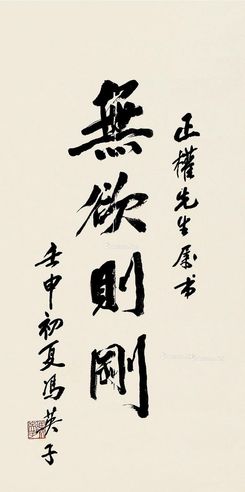 正權先生属书
無欲則剛
壬申初夏冯英子